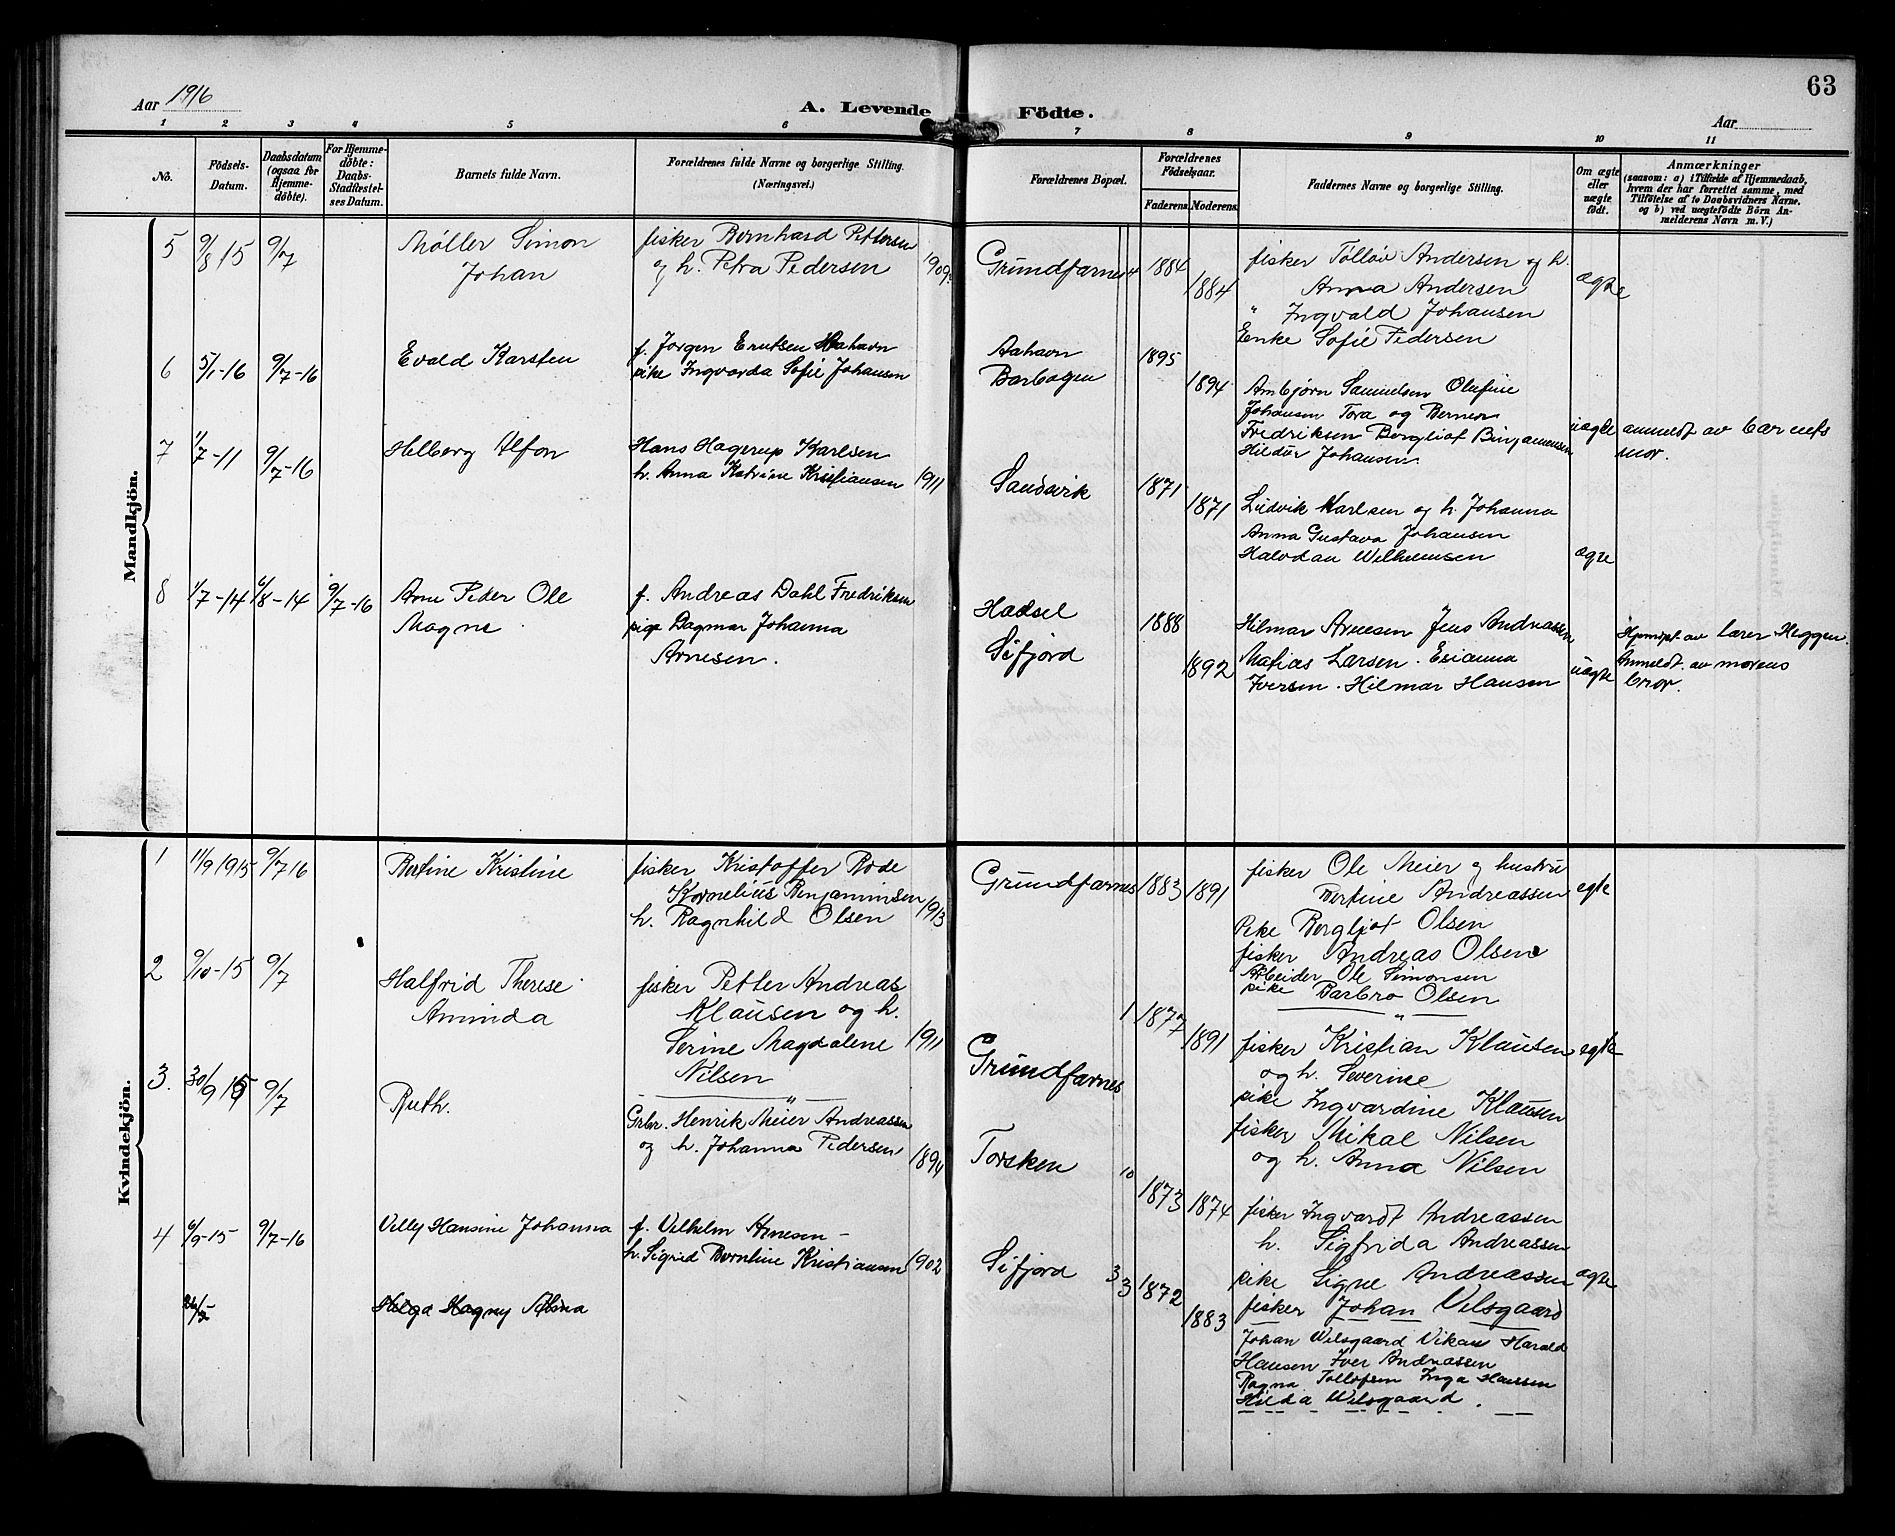 63
Aar 1916
A. Levende Födte.
Aar
1 2 3 4 5 6 7 8 9 10 11
No.
Födsels-Datum.
Daabsdatum (ogsaa for Hjemme-döbte).
For Hjemme-döbte: Daabs-Stadfæstel-ses Datum.
Barnets fulde Navn.
Forældrenes fulde Navne og borgerlige Stilling. (Næringsvei.)
Forældrenes Bopæl.
Forældrenes Födselsaar.
Faderens. Moderens.
Faddernes Navne og borgerlige Stilling.
Om ægte eller uægte födt.
Anmærkninger
(saasom: a) i Tilfælde af Hjemmedaab, hvem der har forrettet samme, med Tilföielse af to Daabsvidners Navne, og b) ved uægtefödte Börn An-melderens Navn m. V.)
Mandkjön.
5 9/8 15 9/7
Møller Simon
Johan
fisker Bernhard Pettersen
og h. Petra Pedersen
1909
Grundfarnes 4 1884
1884
fisker Tølløv Andersen og h.
Anna Andersen
" Ingvald Johansen
Enke Sofie Pedersen
ægte
6 5/1-16 9/7-16
Evald Karsten
f. Jørgen Enutsen Aahavn
pike Ingvarda Sofie Johansen
Aahavn
Barbogen
1895
1894
Ambjørn Samuelsen Olufine
Johansen Tora og Berner
Fredriksen Bergliot Binjaminsen
Hildur Johansen.
uægte
anmeldt av barnets
mor.
7 1/7-11 9/7-16
Helberg Alfon
Hans Hagerup Karlsen
h. Anna Katrine Kristiansen
1911
Sandsvik
1871
1871
Ludvik Karlsen og h. Johanna
Anna Gustava Johansen
Halvdan Wilhelmsen
ægte
8 1/7-14 6/8-14 9/7-16
Arne Peder Ole
Magne
f. Andreas Dahl Fredriksen
pige Dagmar Johanna
Arnesen.
Hadsel
Sifjord
1888
1892
Hilmar Arnesen Jens Andreassen
Matias Larsen. Erianna
Iversen. Hilmar Hansen
uægte
Hjemdøpt av lærer Heggen.
Anmeldt av morens
bror.
Kvindekjön.
1 11/9 1915 9/7 16
Bertine Kristine
fisker Kristoffer Rode
Kornelius Benjaminsen
h. Ragnhild Olsen
1913
Grundfarnes 1883 1891
fisker Ole Meier og hustru
Bertine Andreassen
Pike Bergljot Olsen
fisker Andreas Olsen
Arbeider Ole Simonsen
pike Barbro Olsen
egte
2 9/10-15 9/7
Halfrid Therese
Aminda
fisker Petter Andreas
Klausen og h.
Serine Magdalene
Nilsen
1911
Grundfarnes
1 1877
1891
fisker Kristian Klausen
og h. Severine
pike Ingvardine Klausen
fisker Mikal Nilsen
og h. Anna Nilsen
egte
3. 30/9 15 9/7
Ruth.
Grbr. Henrik Meier Andreassen
og h. Johanna Pedersen
1894
Torsken
10 1873 1874
fisker Ingvardt Andreassen
h. Sigfrida Andreassen
pike Signe Andreassen
fisker Johan Vilsgaard
4 6/9-15 9/7-16
Villy Hansine Johanna
f. Vilhelm Arnesen -
h. Sigrid Berntine Kristiansen
1902
Sifjord
3 3 1872
1883
ægte
Johan Wilsgaard Vikan Harald
Hansen Iver Andreassen
Ragna Tollofsen Inga Hansen
Hilda Wilsgaard.
Helga Hagny Albina